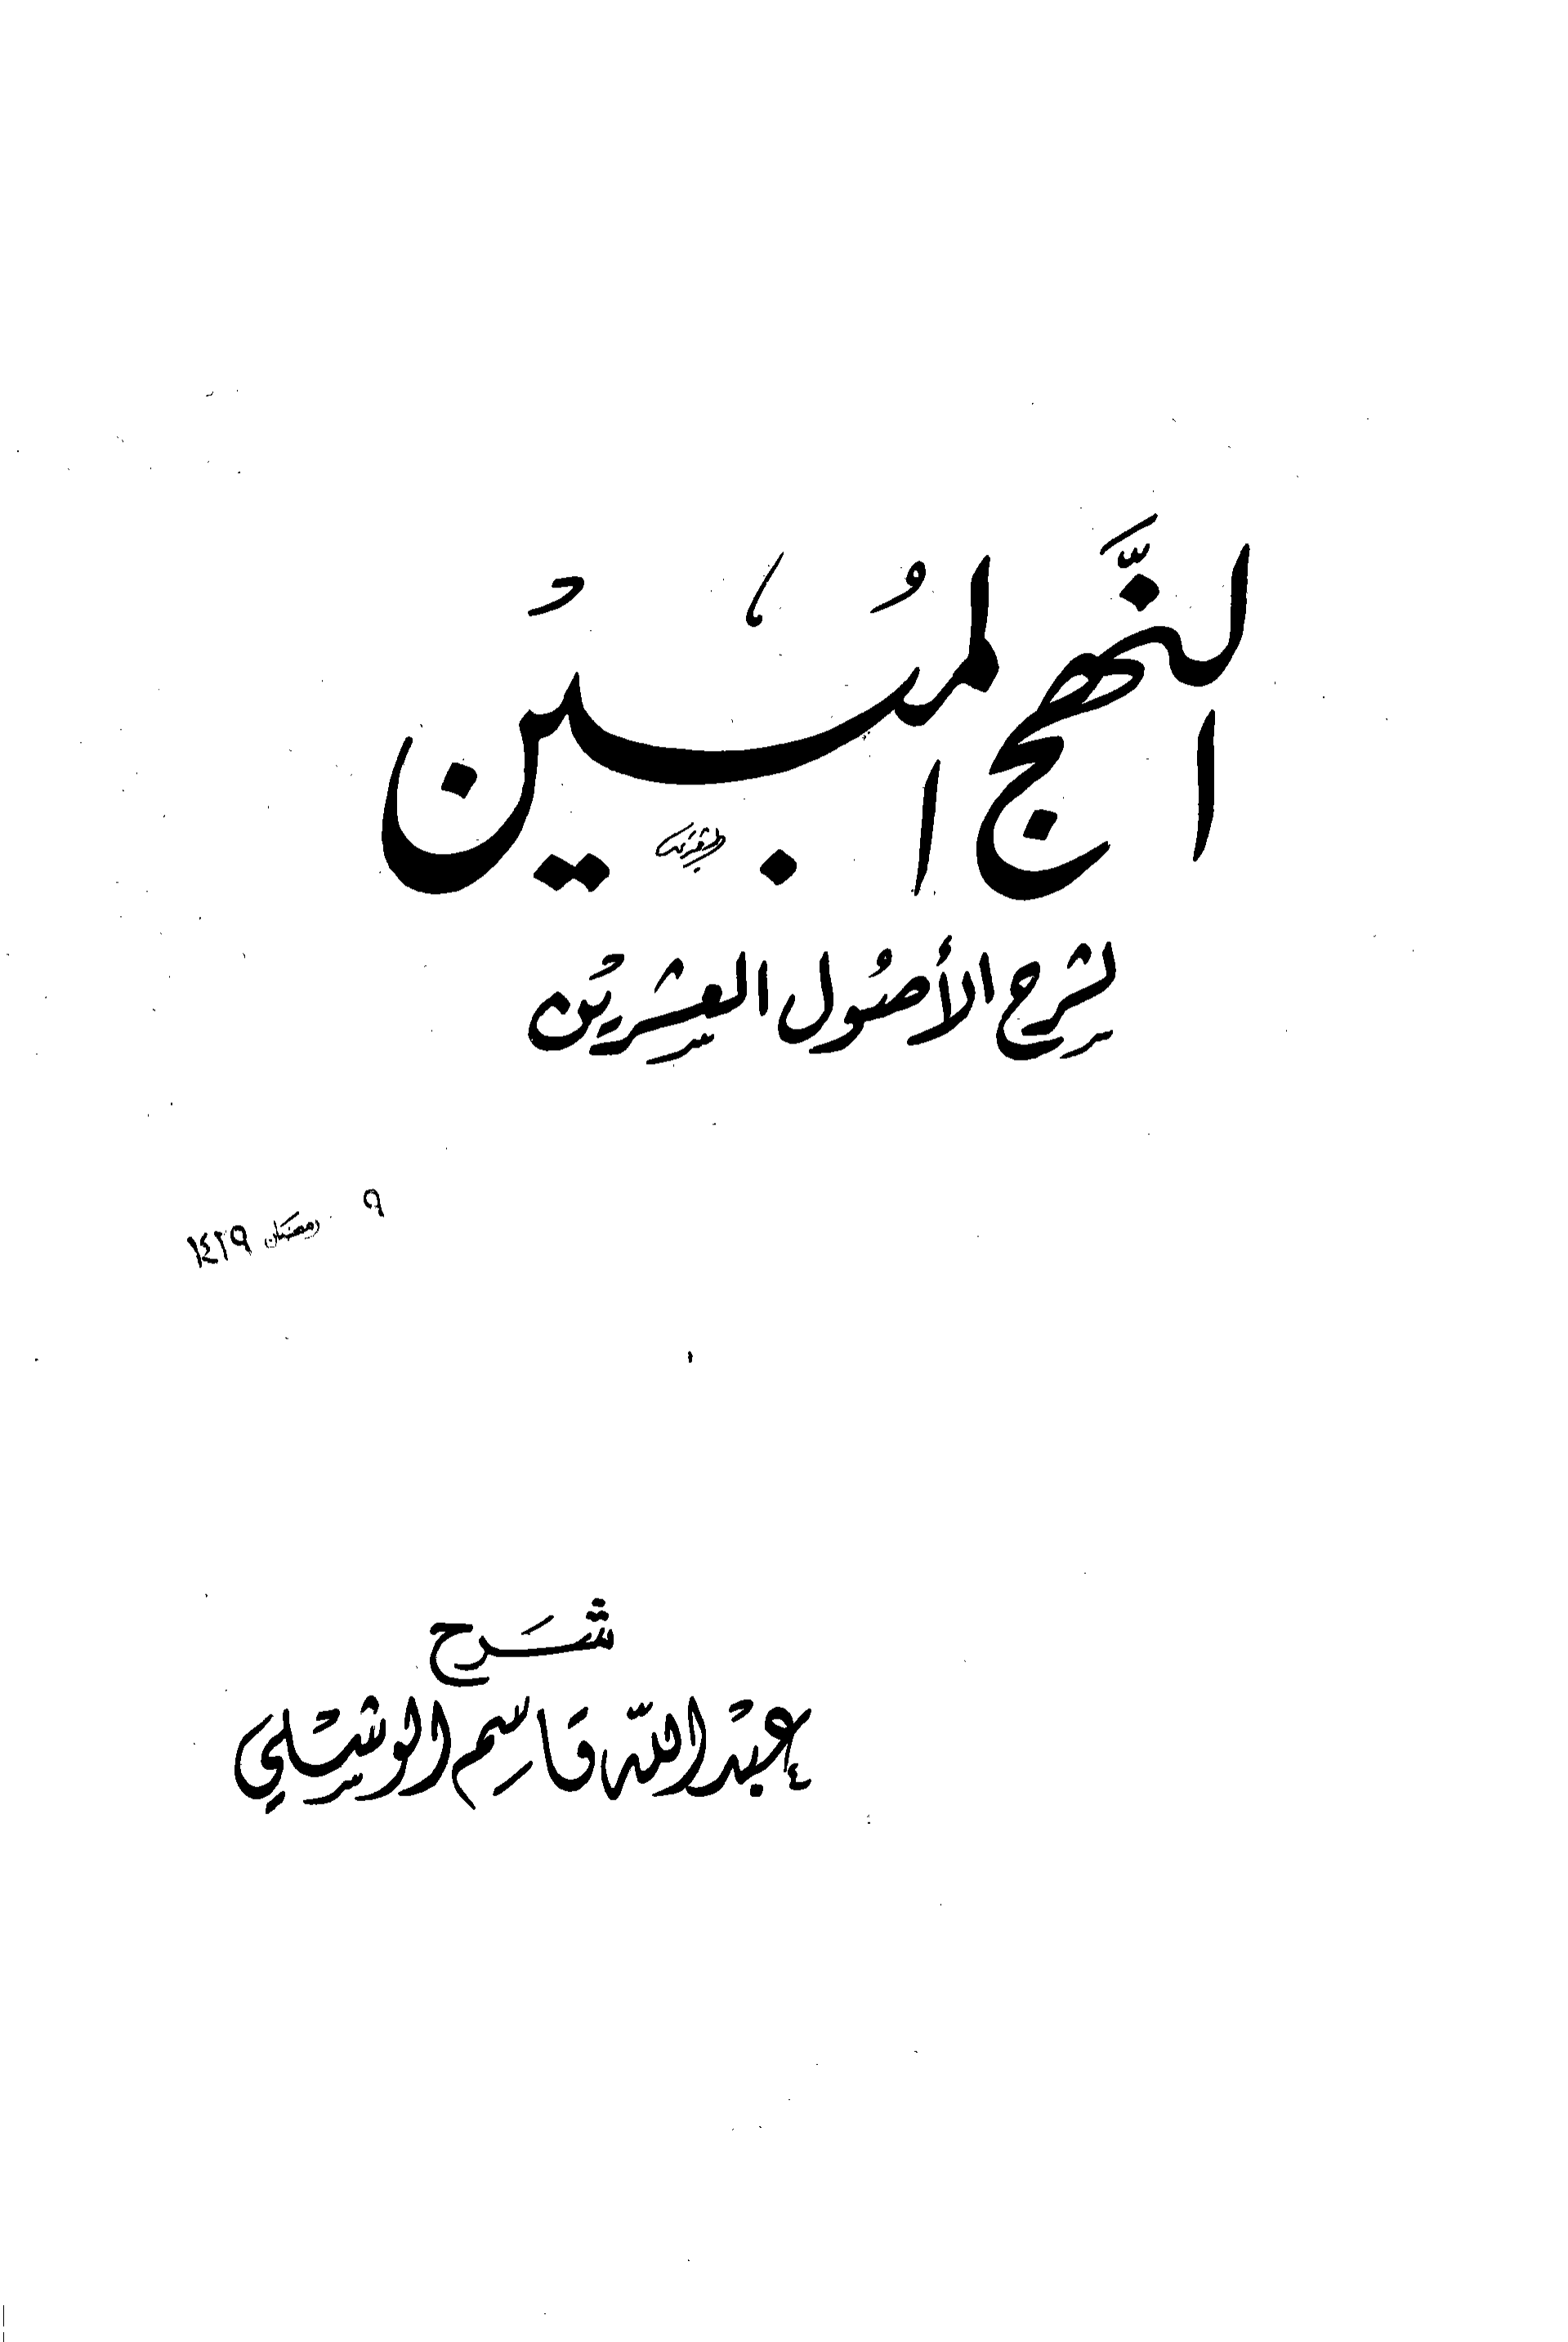 النَّهج المُبين
لشرح الأصُول العِشرين
٩ رمضان ١٤٢٩
شَرح
عَبْد اللّه قَاسِم الوشَلي